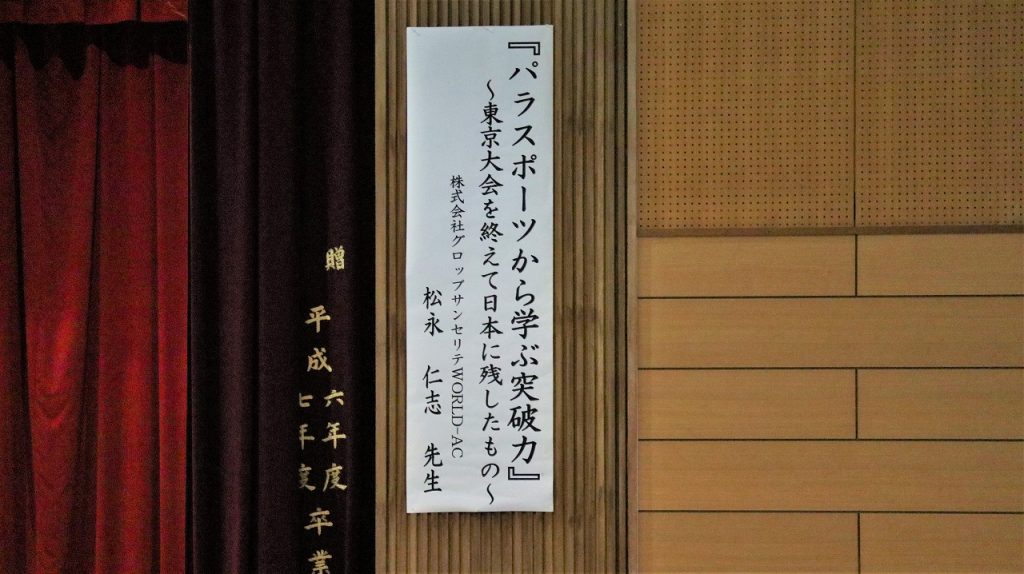 『パラスポーツから学ぶ突破力』
～東京大会を終えて日本に残したもの～
株式会社グロップサンセリテWORLD-AC
松永 仁志 先生
贈
平成 六年度
七年度 卒業